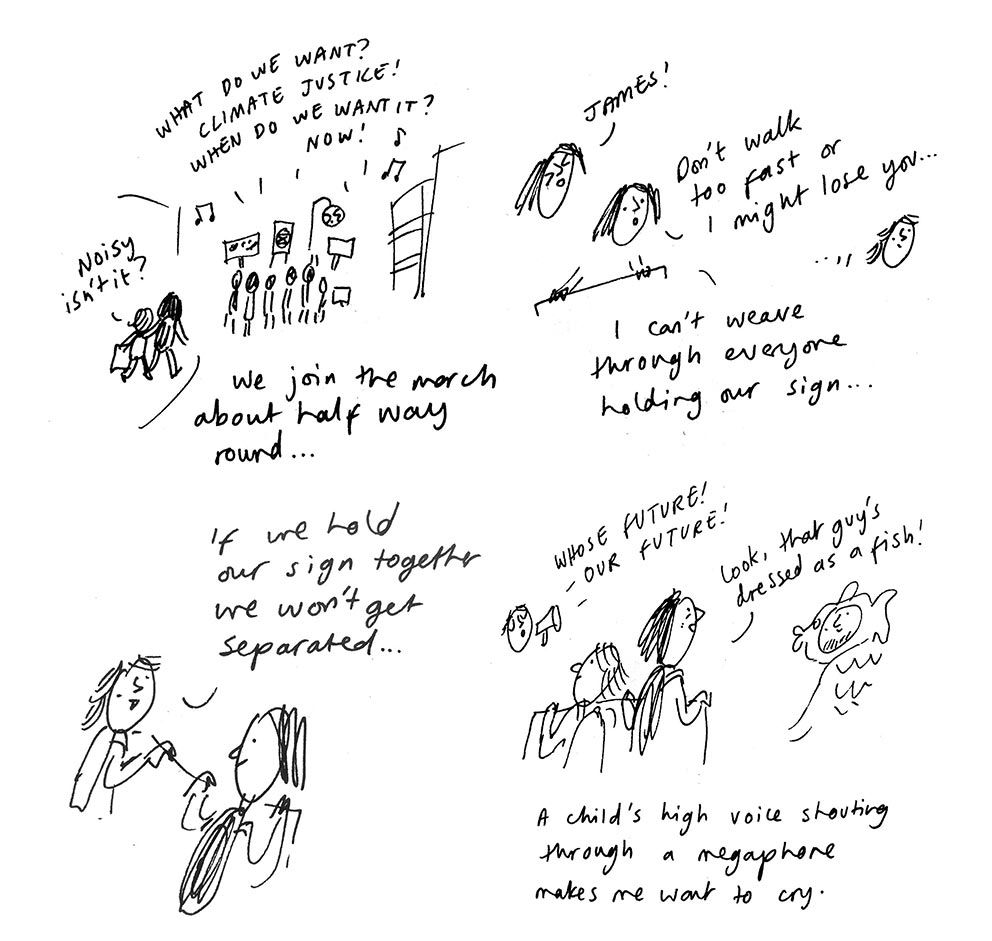 WHAT DO WE WANT?
CLIMATE JUSTICE!
WHEN DO WE WANT IT?
NOW!
Noisy
isn't it?
We join the march
about half way
round...
JAMES!
Don't walk
too fast or
I might lose you...
I can't weave
through everyone
holding our sign...
If we hold
our sign together
we won't get
separated...
WHOSE FUTURE!
OUR FUTURE!
Look, that guy's
dressed as a fish!
A child's high voice shouting
through a megaphone
makes me want to cry.